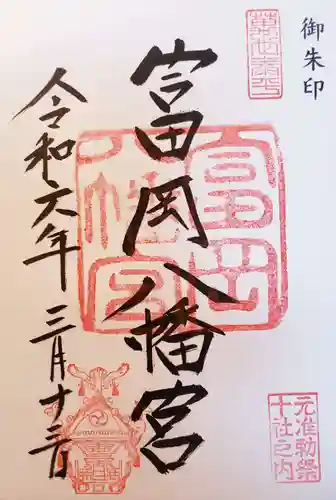 御朱印
萬世泰平
元准勅祭
十社之内
富岡八幡宮
富岡
八幡宮
令和六年 三月十三日